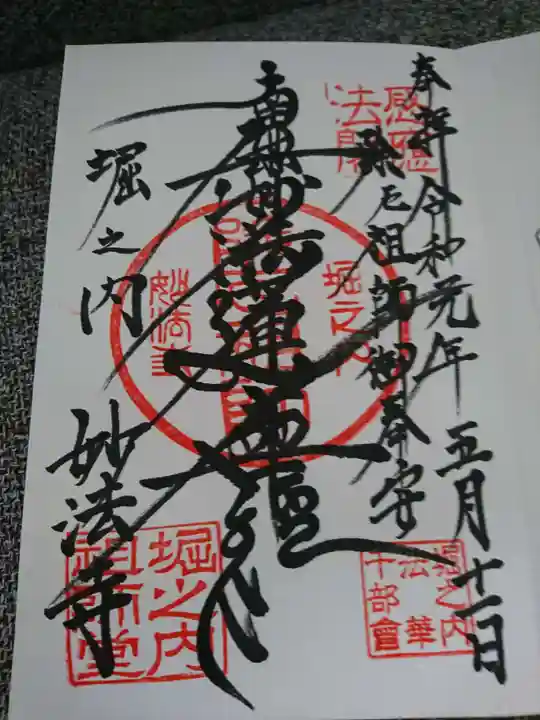 奉拝 令和元年五月十一日
除厄祖師御奉安
感應法閣
南無妙法蓮華経
堀之内
堀之内 妙法寺
堀之内法華千部會
堀之内祖師堂